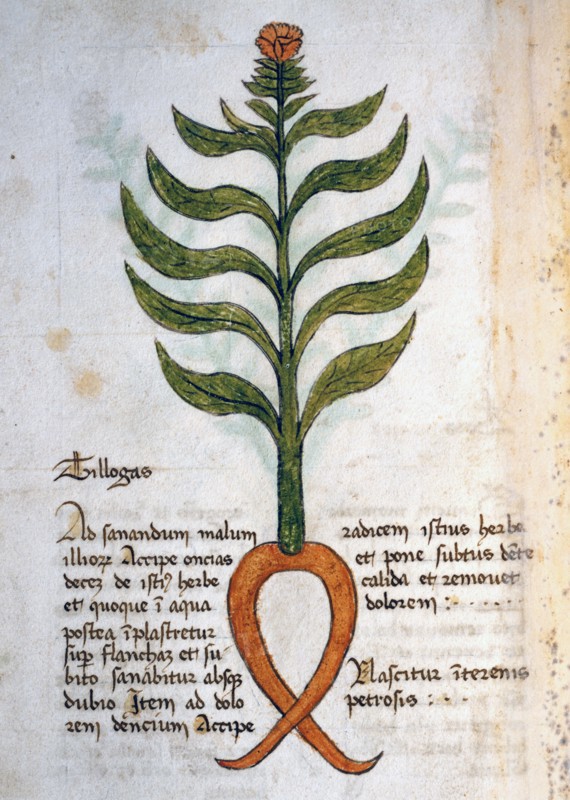 Tillogas
Ad sanandum malum
illioꝝ Accipe oncias
deceʒ de istiꝰ herbe
et quoque ī aqua
postea īplastretur
suꝑ flanchaʒ et su
bito sanabitur absqꝫ
dubio Item ad dolo
rem dencium Accipe
radicem istius herbe
et pone subtus dēte
calida et removet
dolorem :
Nascitur īterenis
petrosis :